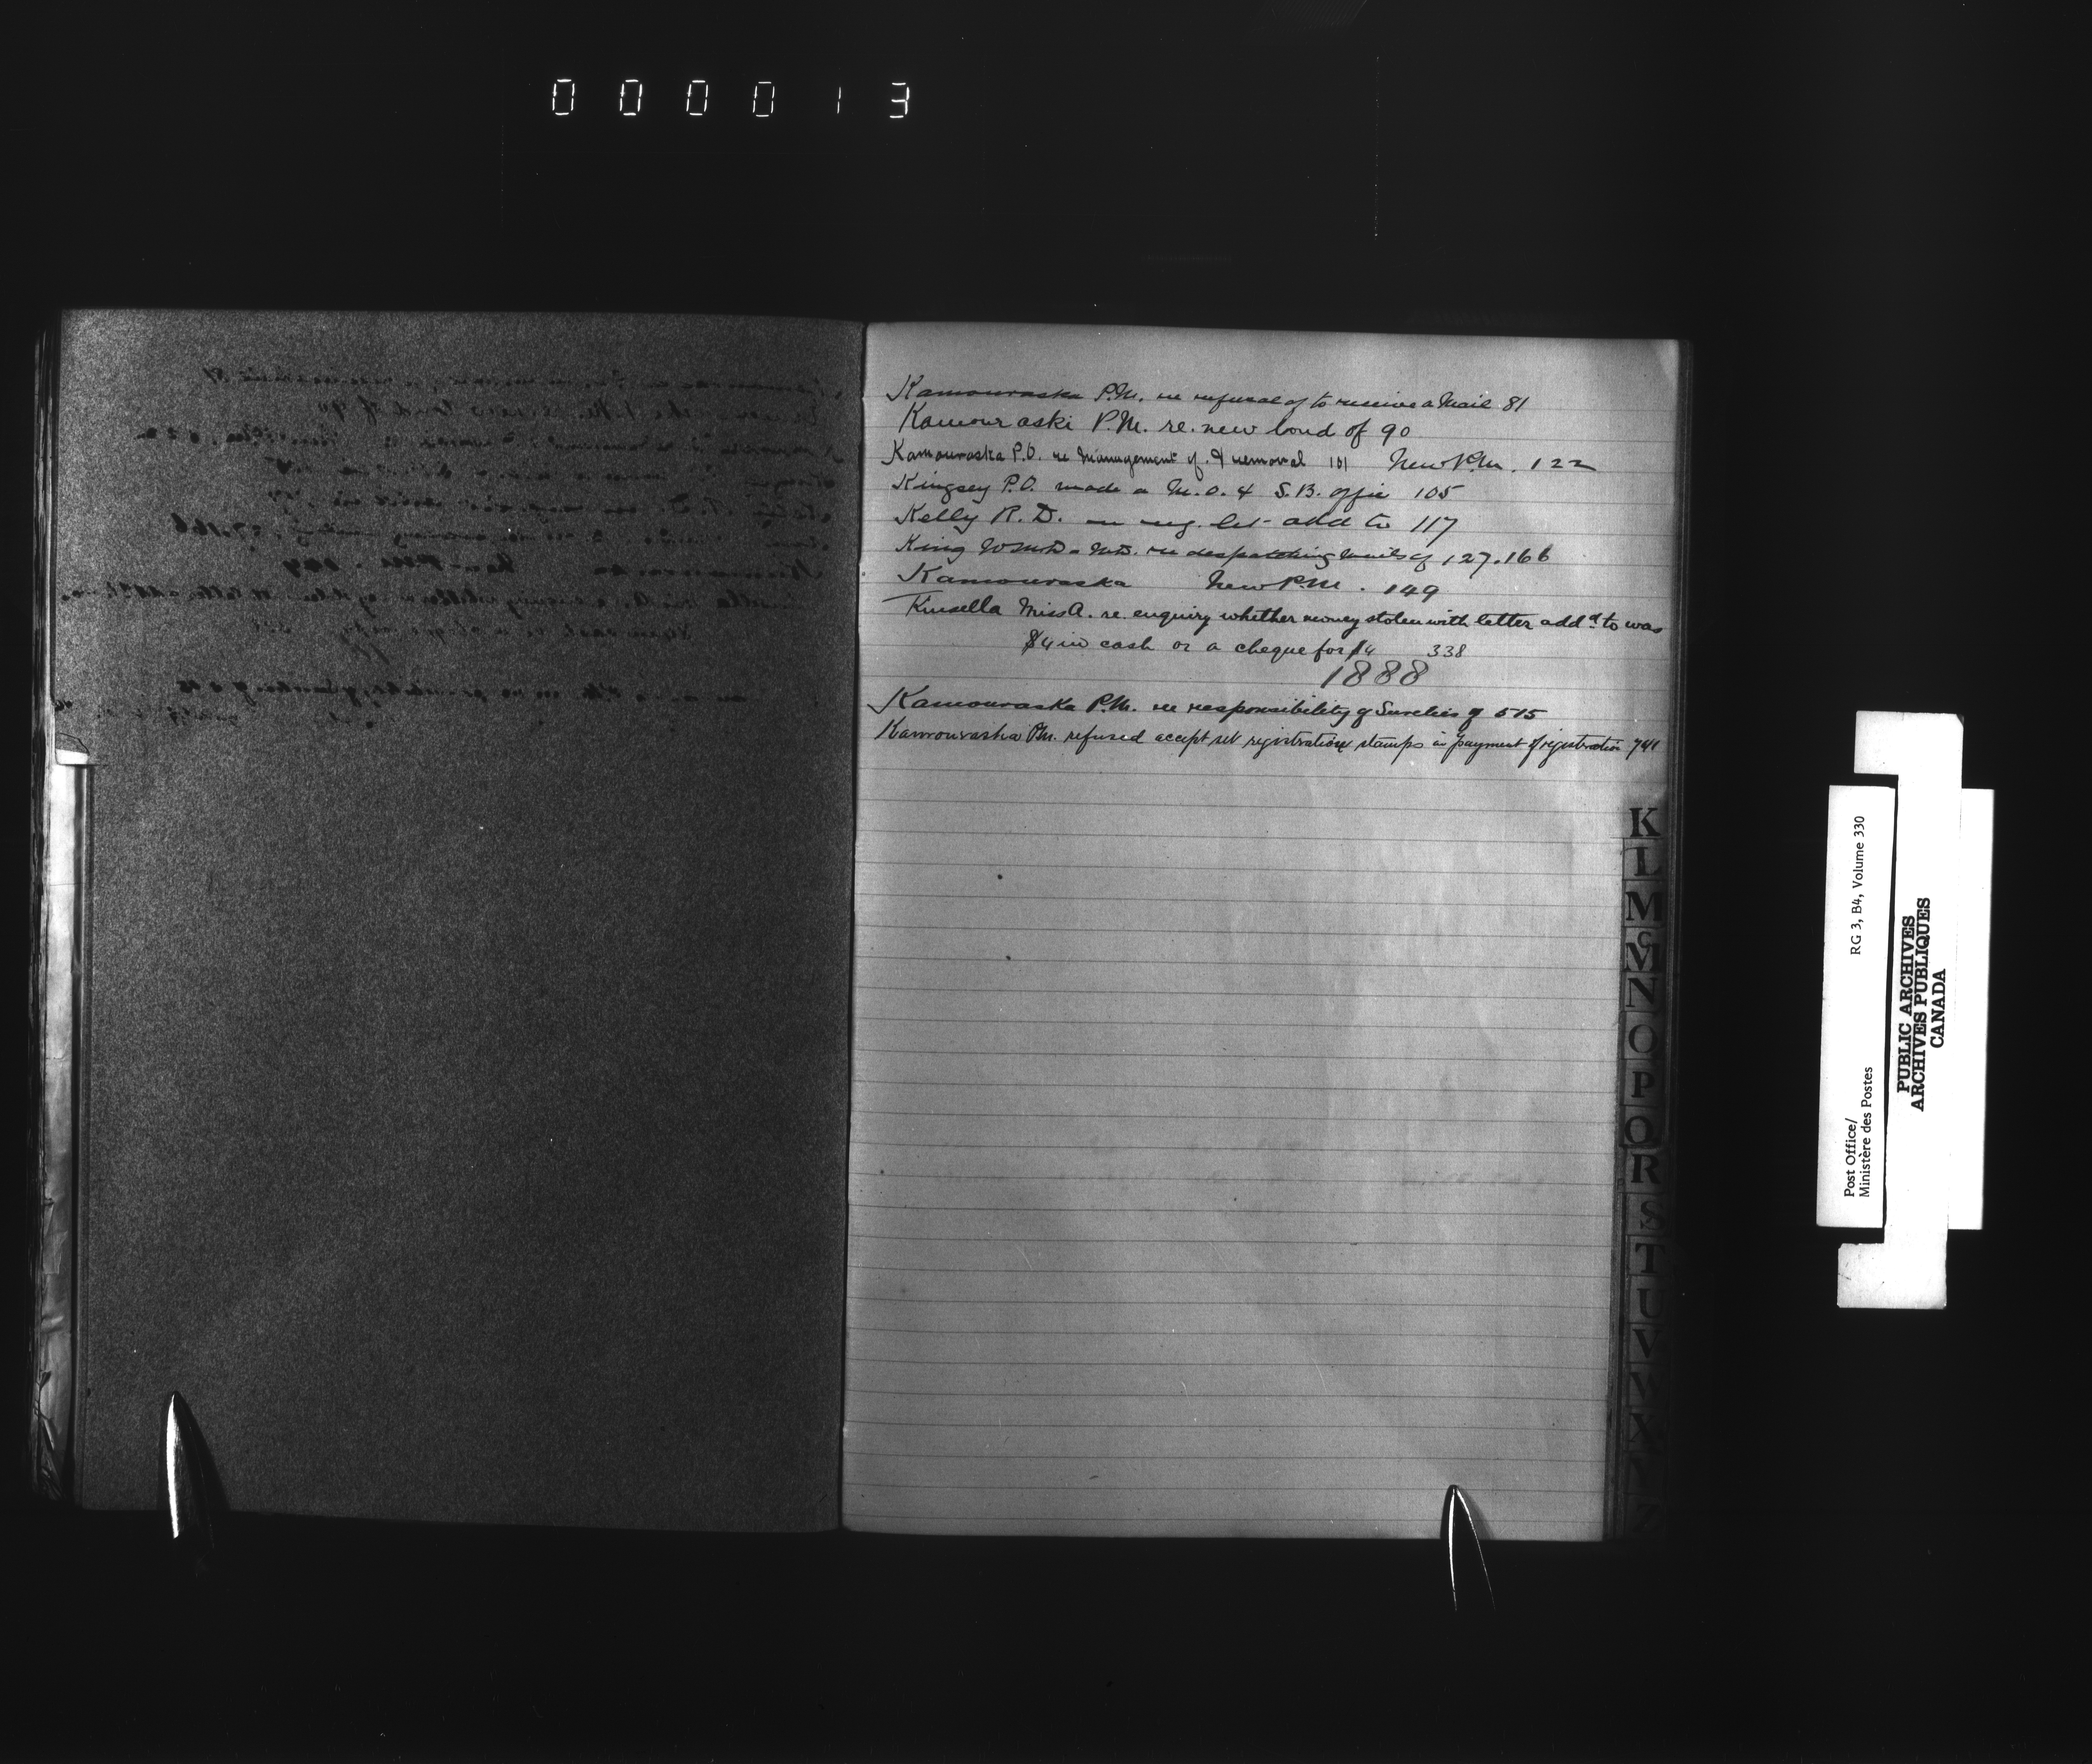 000013
Kamouraska P.M. re refusal of to receive a Mail 81
Kamouraski P.M. re. new bond of 90
Kamouraska P.O. re Management of & removal 101 New P.M. 122
Kingsey P.O. made a M.O. & S.B. office 105
Kelly R. D. re reg. let add to 117
King re despatching mails of 127.166
Kamouraska New P.M. 149
Kinsella Miss A. re. enquiry whether money stolen with letter addd to was
$4 in cash or a cheque for $4 338
1888
Kamouraska P.M. re responsibility of Sureties of 515
Kamouraska P.M. refused accept registration stamps in payment of registration 741
K
L
M
Mc
N
O
P
Q
R
S
T
U
V
W
X
Y
Z
Post Office/
Ministère des Postes
RG 3, B4, Volume 330
PUBLIC ARCHIVES
ARCHIVES PUBLIQUES
CANADA